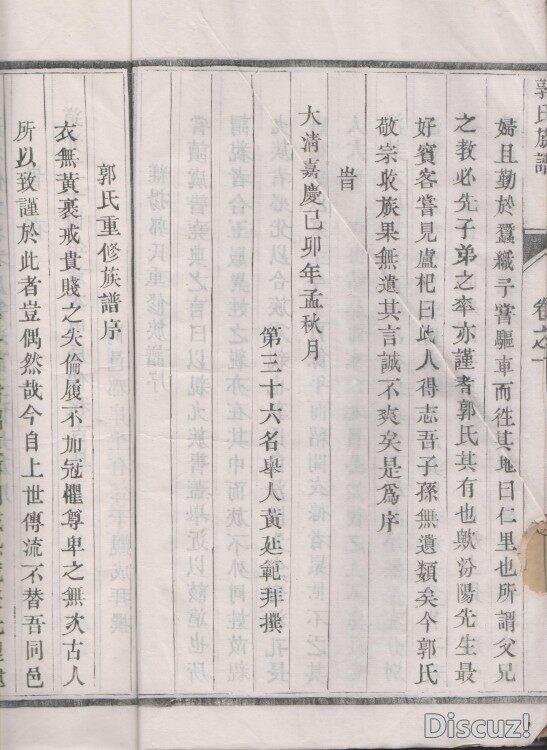 郭氏族譜
卷之一
婦且勤於蠶織予嘗驅車而徃其地曰仁里也所謂父兄
之教必先子弟之率亦謹者郭氏其有也歟汾陽先生最
好賓客嘗見盧杞曰此人得志吾子孫無遺類矣今郭氏
敬宗收族果無遺其言誠不爽矣是爲序
旹
大清嘉慶己卯年孟秋月
第三十六名舉人黃延範拜撰
郭氏重修族譜序
衣無黃裹戒貴賤之失倫履不加冠懼尊卑之無次古人
所以致謹於此者豈偶然哉今自上世傳流不替吾同邑
Discuz!